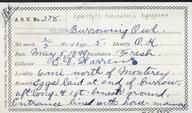 A. O. U. No. 378. Speotyto cunicularia hypogaea
Western Burrowing Owl.
Set No. 5 No. of Eggs 5. Identity O.K.
Date May 5, 1894 Incubation Fresh
Collector E. R. Warren
Locality 6 mi north of Monterey
Eggs laid at end of Burrow,
6ft long, & 1ft beneath ground.
Entrance lined with horse manure